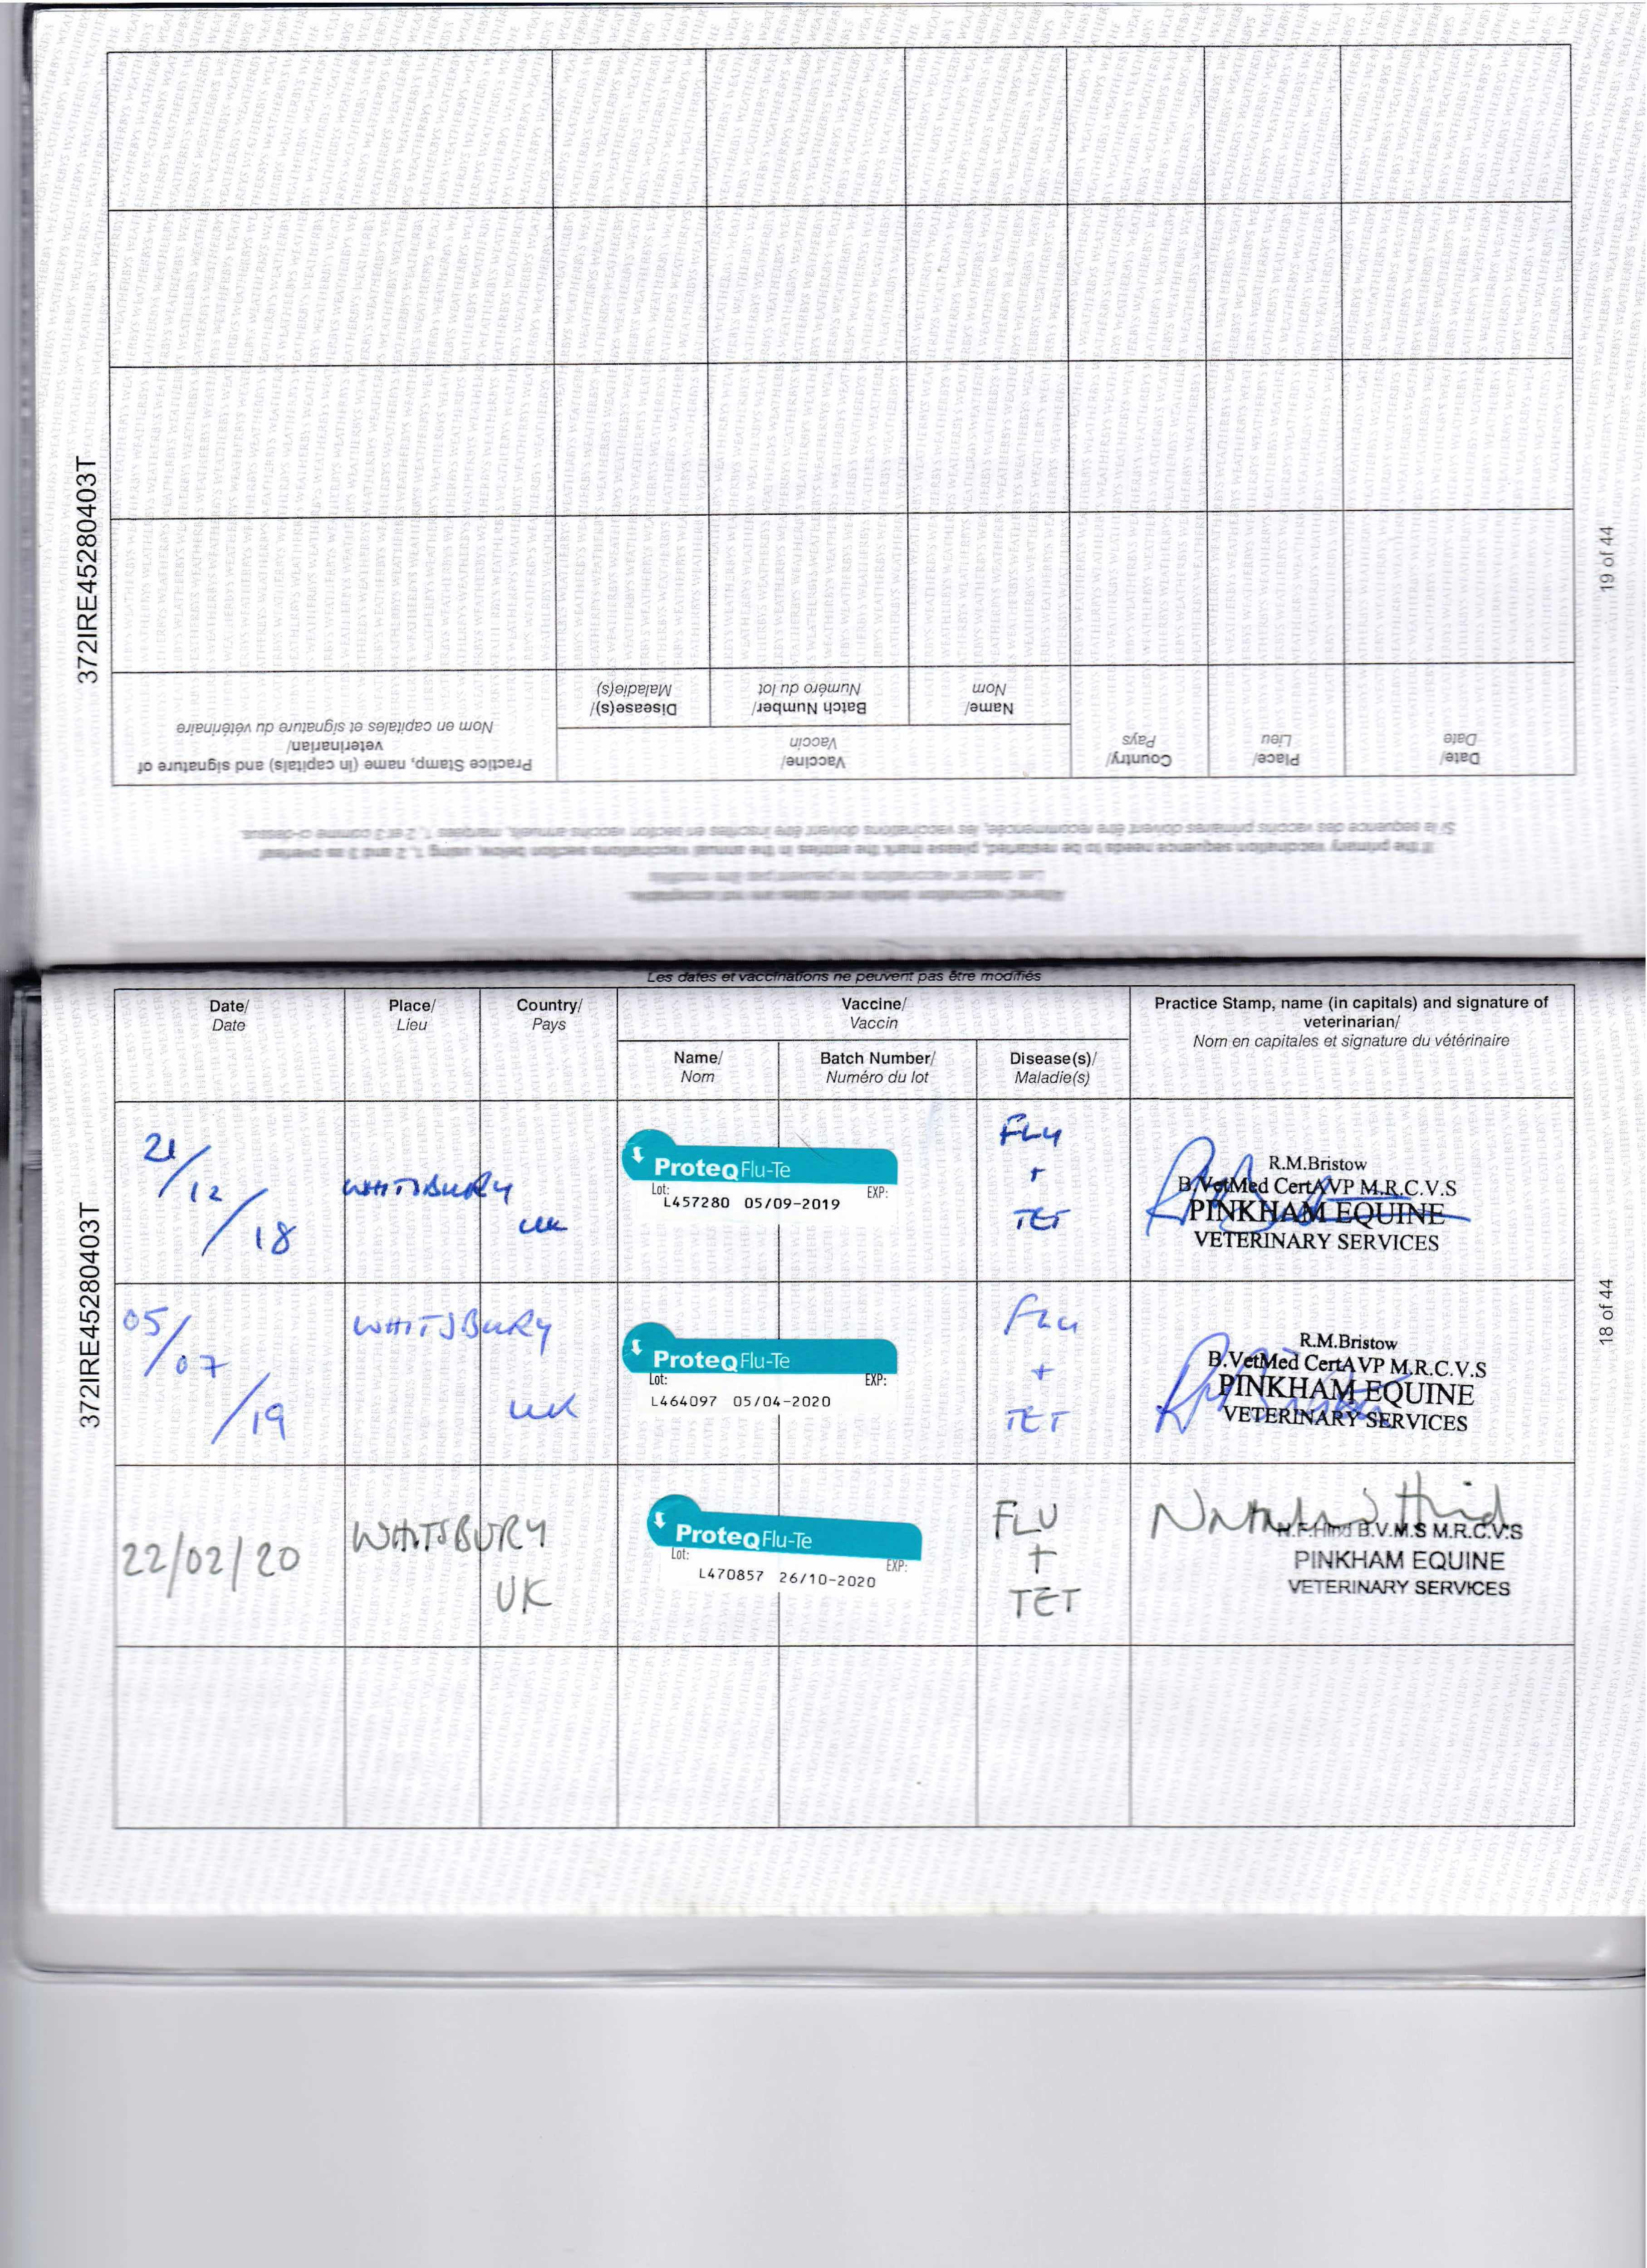 372IRE45280403T
19 of 44
Altered vaccination details and dates are not acceptable.
Les dates et vaccinations ne peuvent pas être modifiés
If the primary vaccination sequence needs to be restarted, please mark the entries in the annual vaccinations section below, using 1, 2 and 3 as overleaf
Si la sequence des vaccins primaires doivent être recommencée, les vaccinations doivent être inscrites en section vaccins annuels, marqees 1, 2 et 3 comme ci-dessus.
Date/
Date
Place/
Lieu
Country/
Pays
Vaccine/
Vaccin
Name/
Nom
Batch Number/
Numéro du lot
Disease(s)/
Maladie(s)
Practice Stamp, name (in capitals) and signature of
veterinarian/
Nom en capitales et signature du vétérinaire
Les dates et vaccinations ne peuvent pas être modifiés
372IRE45280403T
18 of 44
Date/
Date
Place/
Lieu
Country/
Pays
Vaccine/
Vaccin
Name/
Nom
Batch Number/
Numéro du lot
Disease(s)/
Maladie(s)
Practice Stamp, name (in capitals) and signature of
veterinarian/
Nom en capitales et signature du vétérinaire
21/12/18
WHITSBURY
UK
ProteqFlu-Te
Lot: EXP:
L457280 05/09-2019
FLU
+
TET
R.M.Bristow
B.VetMed CertAVP M.R.C.V.S
PINKHAM EQUINE
VETERINARY SERVICES
05/07/19
WHITSBURY
UK
ProteqFlu-Te
Lot: EXP:
L464097 05/04-2020
FLU
+
TET
R.M.Bristow
B.VetMed CertAVP M.R.C.V.S
PINKHAM EQUINE
VETERINARY SERVICES
22/02/20
WHITSBURY
UK
ProteqFlu-Te
Lot: EXP:
L470857 26/10-2020
FLU
+
TET
B.V.M.S M.R.C.V.S
PINKHAM EQUINE
VETERINARY SERVICES